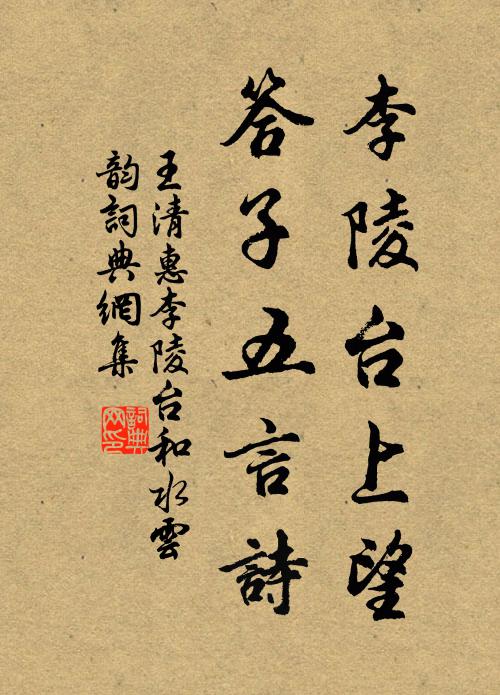 李陵台上望
答子五言詩
王清惠李陵台和水雲
韵詞典網集
詞典網印